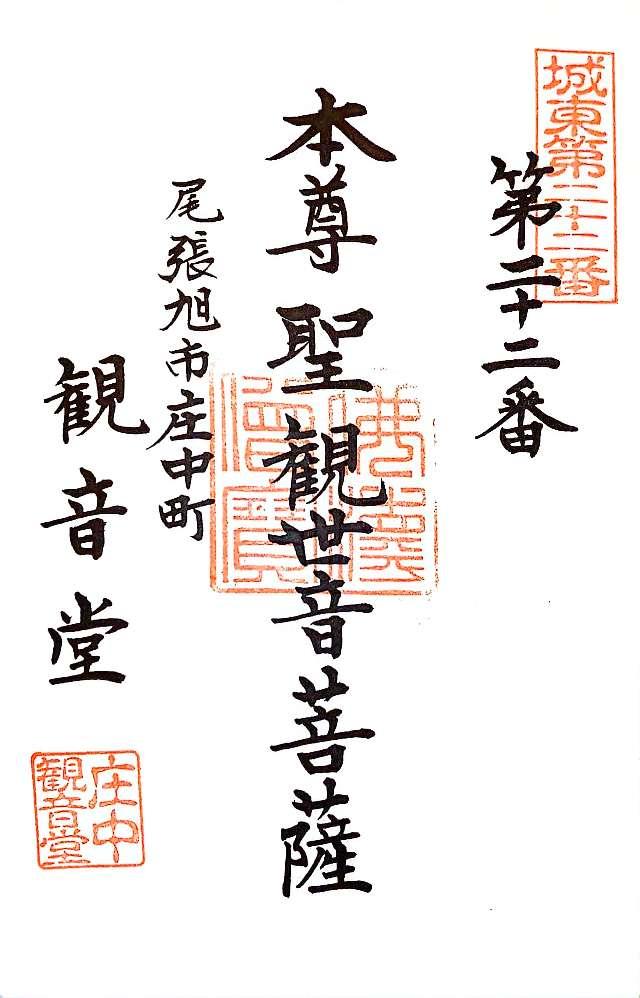 城東第二十二番
第二十二番
本尊聖観世音菩薩
尾張旭市庄中町
観音堂
庄中
観音堂